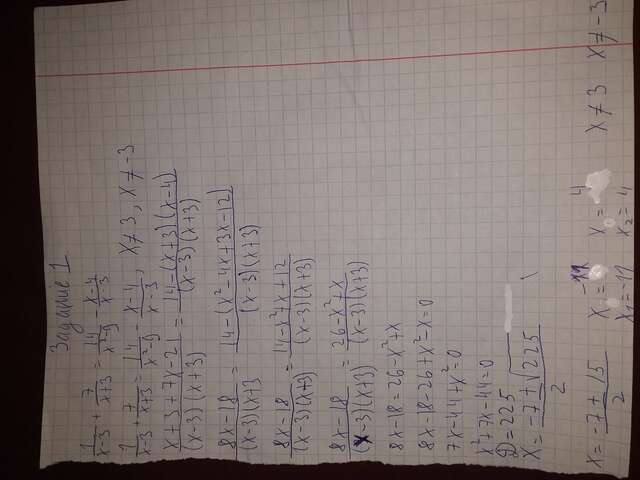 Задание 1
1/(x-3) + 7/(x+3) = 14/(x²-9) - (x-4)/(x-3)
1/(x-3) + 7/(x+3) = 14/(x²-9) - (x-4)/(x-3), x≠3, x≠-3
(x+3+7x-21)/((x-3)(x+3)) = (14-(x+3)(x-4))/((x-3)(x+3))
(8x-18)/((x-3)(x+3) = (14-(x²-4x+3x-12))/((x-3)(x+3))
(8x-18)/((x-3)(x+3)) = (14-x²+x+12)/((x-3)(x+3))
(8x-18)/((x-3)(x+3)) = (26-x²+x)/((x-3)(x+3))
8x-18=26-x²+x
8x-18-26+x²-x=0
7x-44+x²=0
x²+7x-44=0
D=225
x=(-7±√225)/2
x=(-7±15)/2
x₁=-11 x=4 x≠3 x≠-3
x₁=-11 x₂=4